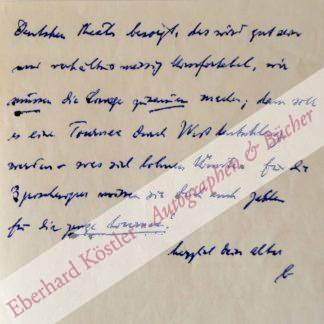 Deutschen Theater besorgt, das wird gut sein
und verhältnismässig komfortabel, wir
müssen die Truppe machen; dann soll
es eine Tournee durch Westdeutschland
werden – was sich lohnen könnte. für die
müssen sie doch auch zahlen
für die ganze tournee.
herzlich dein alter
b
Eberhard Köstler Autographen & Bücher